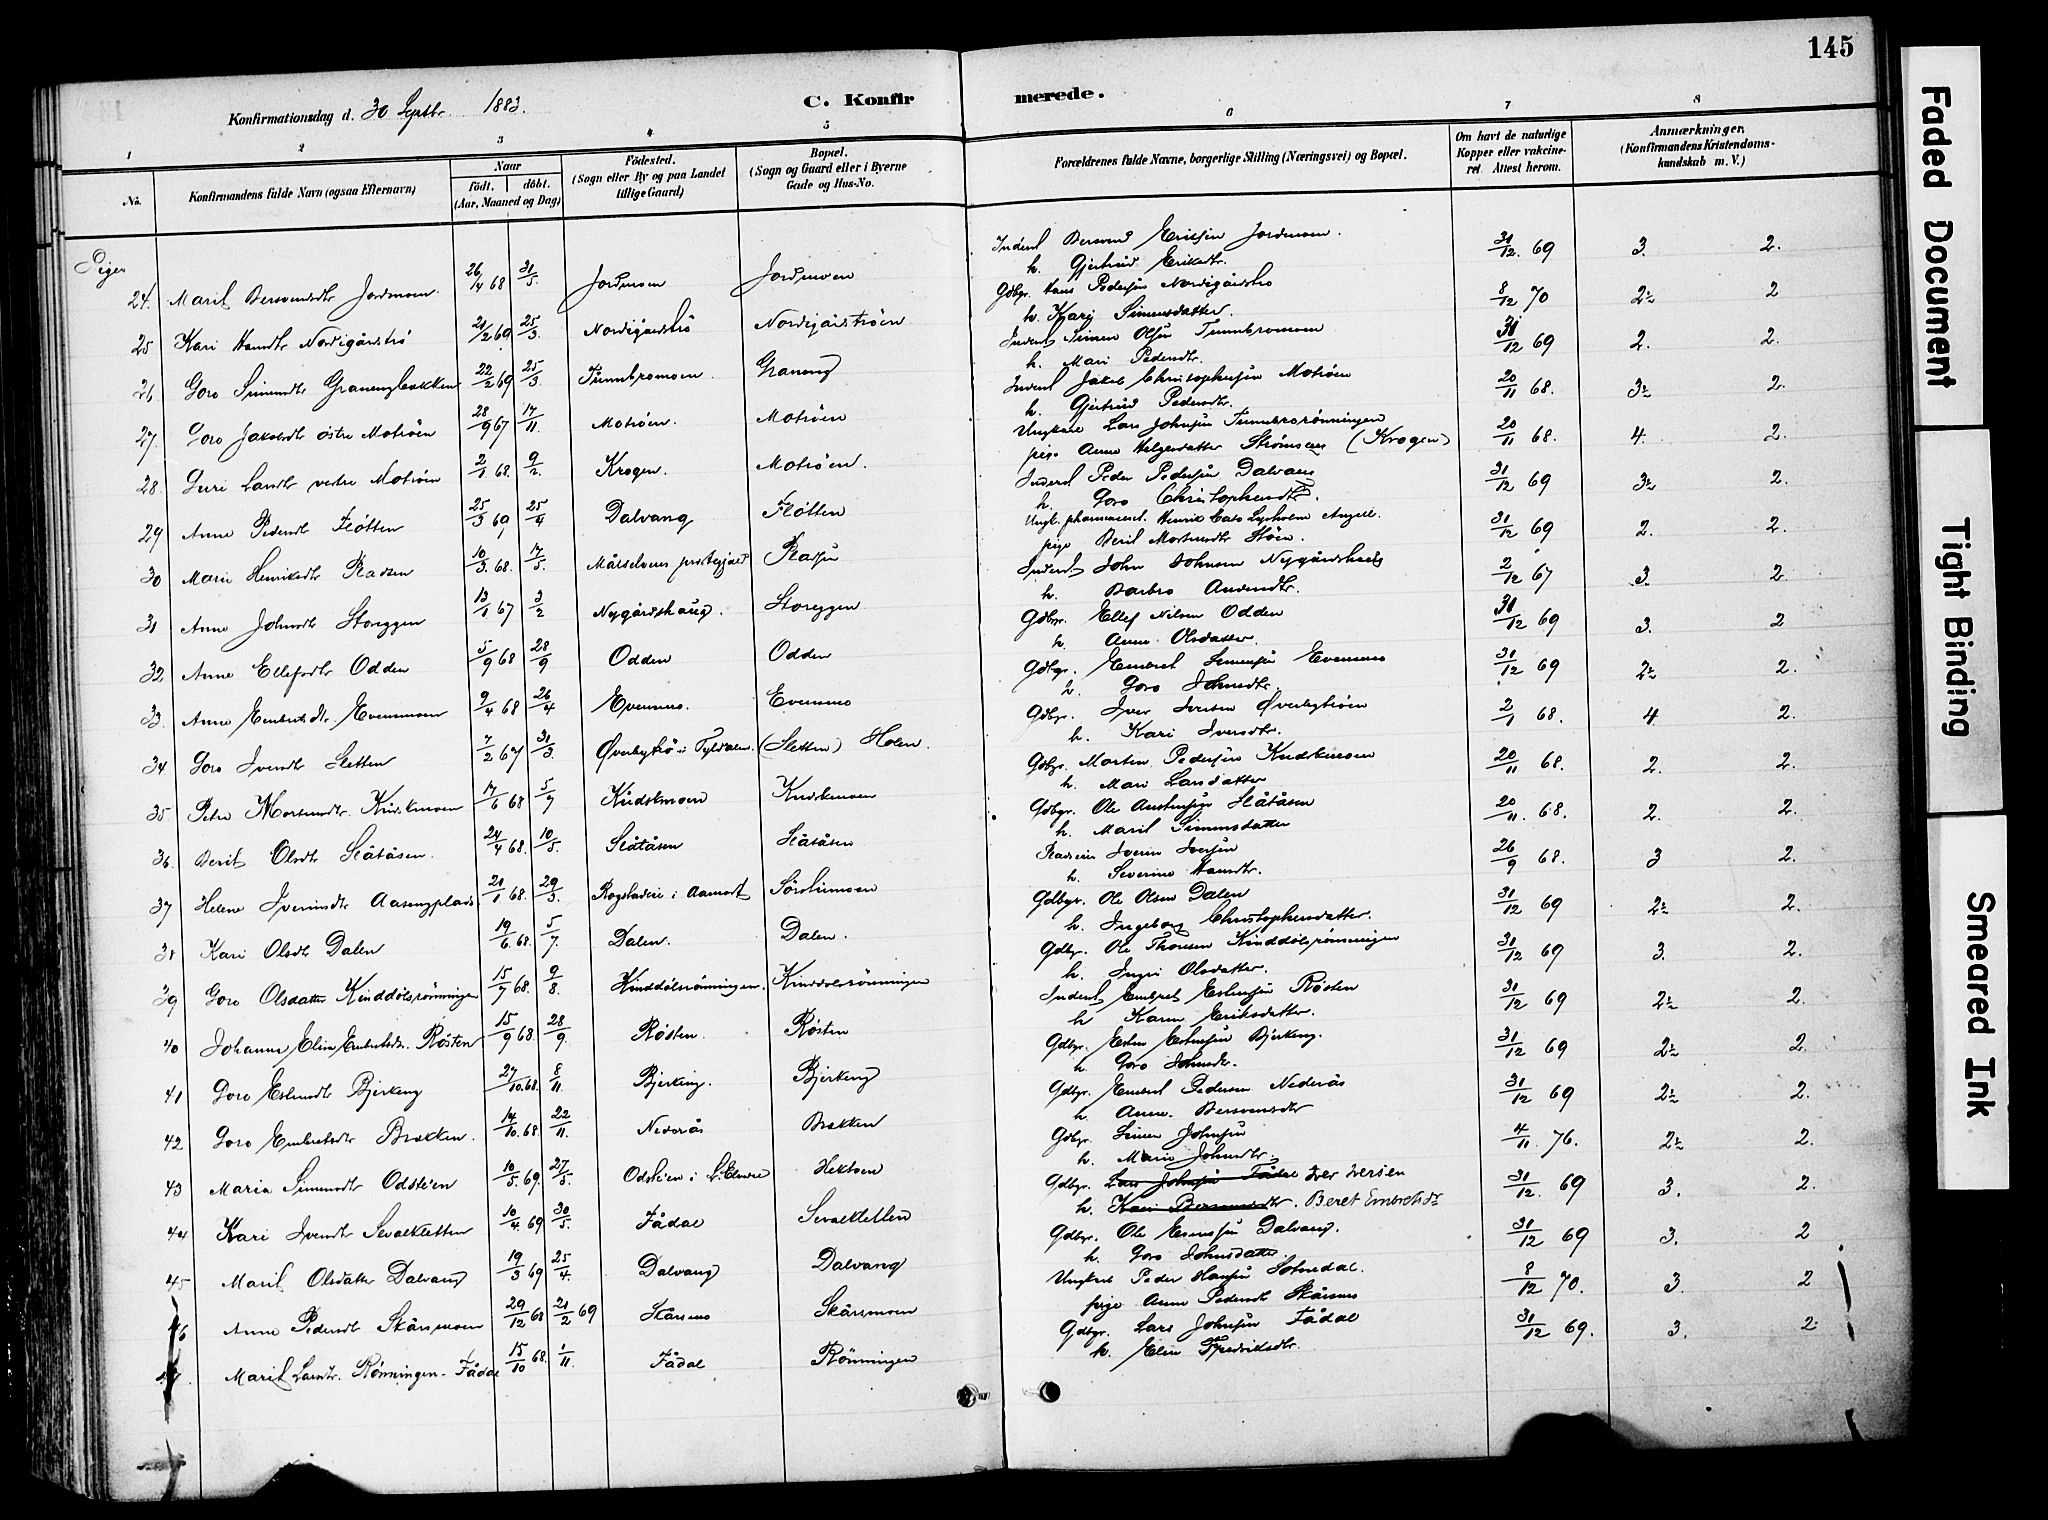 145
Konfirmationsdag d. 30 Septbr 1883.
C. Konfirmerede.
1 2 3 4 5 6 7 8
No. Konfirmandens fulde Navn (ogsaa Efternavn) Naar født. døbt. (Aar, Maaned og Dag) Fødested. (Sogn eller By og paa Landet tillige Gaard) Bopæl. (Sogn og Gaard eller i Byerne Gade og Hus-No. Forældrenes fulde Navne, borgerlige Stilling (Næringsvei) og Bopæl. Om havt de naturlige Kopper eller vakcineret. Attest herom. Anmærkninger. (Konfirmandens Kristendomskundskab m. V.)
Piger
24. Marit Bersvendtr Jordmoen 26/4 68 31/5 Jordmoen Jordmoen Inderst Bersvend Eriksen Jordmoen. h. Gjertrud Eriksdtr. 31/12 69 3. 2.
25 Kari Hansdtr Nordigårdstrø 21/2 69 25/3 Nordigårdstrø Nordigårdstrøen Gdbgr. Hans Pedersen Nordigårdstrø h. Kari Simensdatter. 8/12 70 2½ 2
26 Goro Simensdtr Granengbakken 22/2 69 25/3 Tunnbromoen. Graneng Inderst Simen Olsen Tunnbromoen h. Mari Pedersdtr. 31/12 69 2. 2.
27. Goro Jakobsdtr østre Motrøen 28/9 67 17/11. Motrøen. Motrøen Inderst Jakob Christophersen Motrøen h. Gjertrud Pedersdtr. 20/11 68. 3½ 2.
28. Guri Larsdtr vestre Motrøen 2/1 68. 9/2 Krogen. Motrøen. Ungkarl Lars Johnsen Tunnbrorønningen pige Anne Helgesdatter Strømsens (Krogen) 20/11 68. 4. 2.
29 Anne Pedersdtr Fløtten 25/3 69 25/4 Dalvang Fløtten Inderst Peder Pedersen Dalvang h. Goro Christophersdtr. 31/12 69 3½ 2.
30 Marie Henriksdtr Pladsen 10/3 68. 17/5. Målselvens præstegjæld Pladsen Ungk. pharmaceut. Henrik Cato Lysholm Angell. pige Beril Mortensdtr Støen. 31/12 69 2. 2.
31 Anne Johnsdtr Storeggen 13/1 67 3/2 Nygårdshaug. Storeggen Inderst John Johnsen Nygårdshaug h. Barbro Andersdtr. 2/12 67 3. 2
32 Anne Ellefsdtr Odden 5/9 68 28/9 Odden Odden Gdbgr. Ellef Nilsen Odden h. Anne Olsdatter. 31/12 69 3. 2
33. Anne Embretsdtr. Evenmoen 9/4 68 26/4 Evenmo. Evenmo Gdbgr. Embret Simensen Evenmo h. Goro Johnsdtr. 31/12 69 2½ 2.
34 Goro Iversdtr Sletten 7/2 67 31/3. Øverbytrø i Tyldalen. (Sletten) Holen. Gdbgr. Iver Iversen Øverbytrøen h. Kari Iversdtr. 2/1 68. 4 2.
35 Petra Mortensdtr. Kindskmoen 17/6 68 5/7 Kindskmoen Kindskmoen Gdbgr. Morten Pedersen Kindskmoen h. Mari Larsdatter 20/11 68. 2. 2.
36. Berit Olsdtr Slåtåsen. 24/4 68. 10/5. Slåtåsen Slåtåsen Gdbgr. Ole Austensen Slåtåsen h. Marit Simensdatter 20/11. 68. 2. 2.
37 Helene Iverinsdtr Aasengplads 21/1 68. 29/3. Rogstadeie i Aamodt Sørslimoen Pladseier Iverin Iversen h. Severine Hansdtr. 26/9 68. 3 2.
38 Kari Olsdtr Dalen 19/6. 68. 5/7. Dalen. Dalen. Gdbgr. Ole Olsen Dalen h. Ingeborg Christophersdatter. 31/12 69 2½ 2.
39 Goro Olsdatter Kinddølsrønningen 15/7 68. 9/8. Kinddølsrønningen. Kinddølsrønningen Gdbgr. Ole Thoresen Kinddølsrønningen h. Ingri Olsdatter. 31/12 69 3. 2.
40 Johanne Eline Embretsdtr. Røsten 15/9 68. 28/9. Røsten. Røsten Inderst Embret Estensen Røsten h Karen Eriksdatter. 31/12 69 2½ 2.
41 Goro Estensdtr Bjerkeng 27/10. 68. 8/11. Bjerkeng. Bjerkeng Gdbgr. Esten Estensen Bjerkeng. h. Goro Johnsdtr. 31/12 69 2½ 2.
42 Goro Embretsdtr Brekken. 14/10. 68. 22/11. Nederås Brekken Gdbgr. Embret Pedersen Nederås h. Anne Bersvendsdtr 31/12 69 2½ 2.
43 Maria Simensdtr Odstøen 10/5. 69. 27/5. Odstøen i L. Elvdal Hektoen Gdbgr. Simen Johnsen h. Marie Johnsdtr. 4/11 76. 2½ 2.
44 Kari Iversdtr Sevaldsletten 10/4. 69 30/5. Fådal Sevaldsletten Gdbgr. Lars Johnsen Fådal Iver Iversen h. Kari Bersvendsdtr. Beret Embretsdr 31/12. 69 3. 2.
45 Marit Olsdatter Dalvang 19/3 69 25/4. Dalvang Dalvang Gdbgr. Ole Estensen Dalvang. h. Goro Johnsdatter. 31/12 69 3. 2
46 Anne Pedersdtr Skårsmoen 29/12 68 21/2 69 Skårsmo Skårsmoen Ungkarl Peder Hansen Sømedal. pige Anne Pedersdtr Skårsmo 8/12 70. 3 2
47. Marit Larsdtr. Rønningen Fådal 15/10 68. 1/11. Fådal Rønningen Gdbgr. Lars Johnsen Fådal h. Elin Fredriksdtr. 31/12 69. 3. 2.
Faded Document
Tight Binding
Smeared Ink